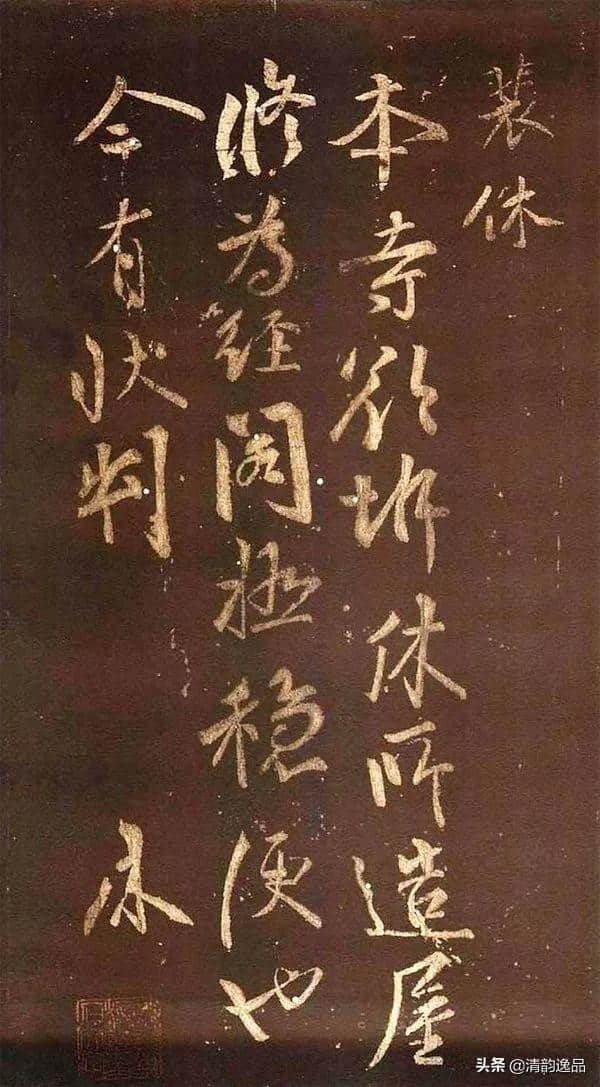 裴休
本寺欲拆休所造屋
修為經閣極穩便也
今有狀判 休
头条 @清韵逸品